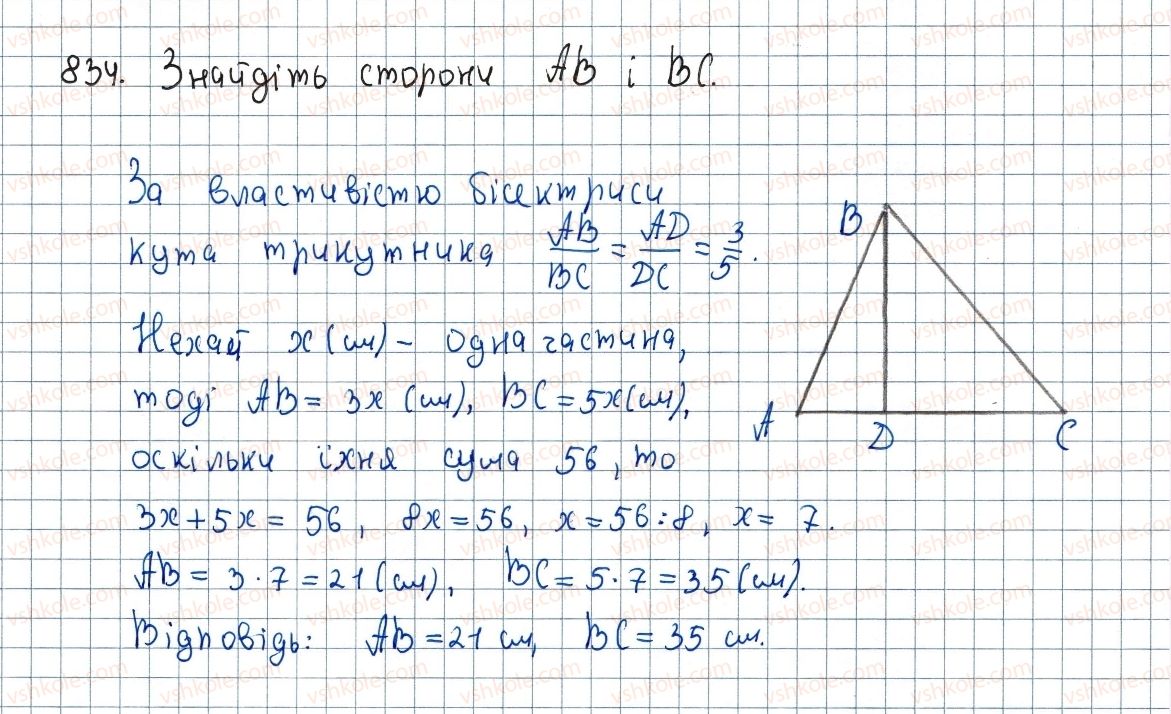 834. Знайдіть сторони AB і BC.
За властивістю бісектриси
кута трикутника AB/BC = AD/DC = 3/5.
Нехай x (см) – одна частина,
тоді AB = 3x (см), BC = 5x (см),
оскільки їхня сума 56, то
3x + 5x = 56, 8x = 56, x = 56 : 8, x = 7.
AB = 3 · 7 = 21 (см), BC = 5 · 7 = 35 (см).
Відповідь: AB = 21 см, BC = 35 см.
B
A D C
vshkole.com